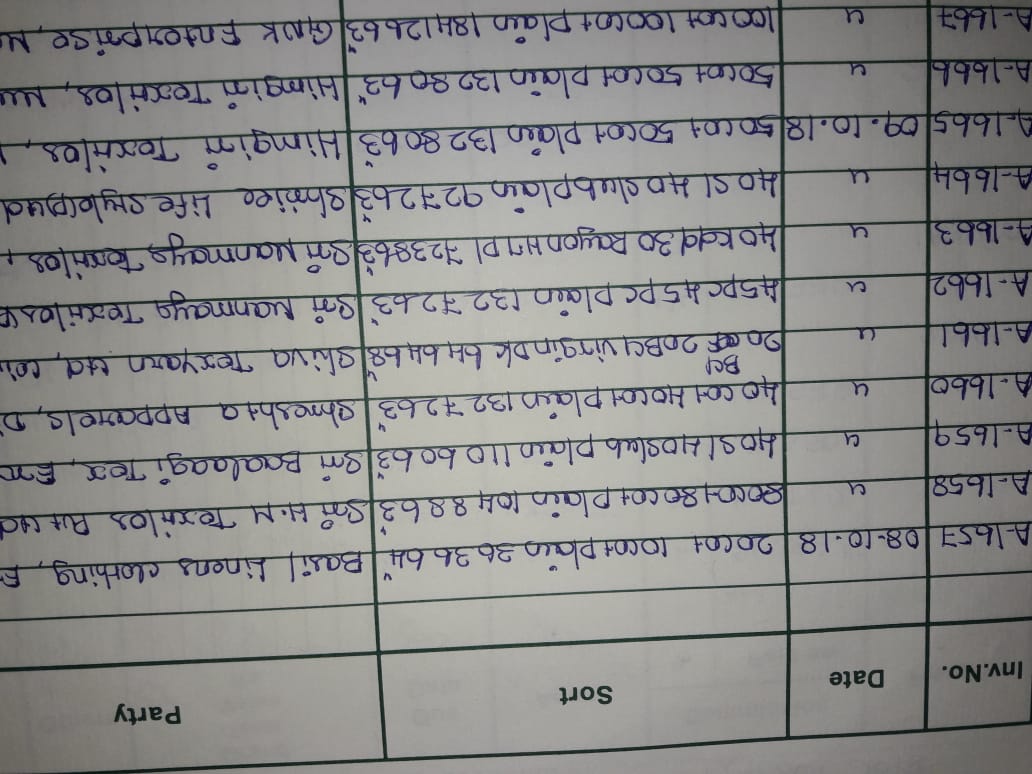 Inv.No. Date Sort Party
A-1657 08-10-18 20cot 10cot plain 36 36 64" Basil Linens clothing,
A-1658 " 80cot 80cot plain 104 88 63" Sri H.N Textiles Pvt Ltd
A-1659 " 40Sl 40slub plain 110 60 63" Sri Baalaagi Tex,
A-1660 " 40cot 40cot plain 132 72 63" Shreshta Apparels,
A-1661 " 20 BCI 20BCI virgin Dk 64 64 68" Shiva Texyarn Ltd,
A-1662 " 45pc 45pc plain 132 72 63" Sri Nanmaya Textiles
A-1663 " 40kdd 30 Rayon HT Pl 72 38 63" Sri Nanmaya Textiles,
A-1664 " 40Sl 40slub plain 92 72 63" Shrilee Life style
A-1665 09.10.18 50cot 50cot plain 132 80 63" Himgiri Textiles,
A-1666 " 50cot 50cot plain 132 80 63" Himgiri Textiles,
A-1667 " 100cot 100cot plain 184 126 63" GNK Enterprise,